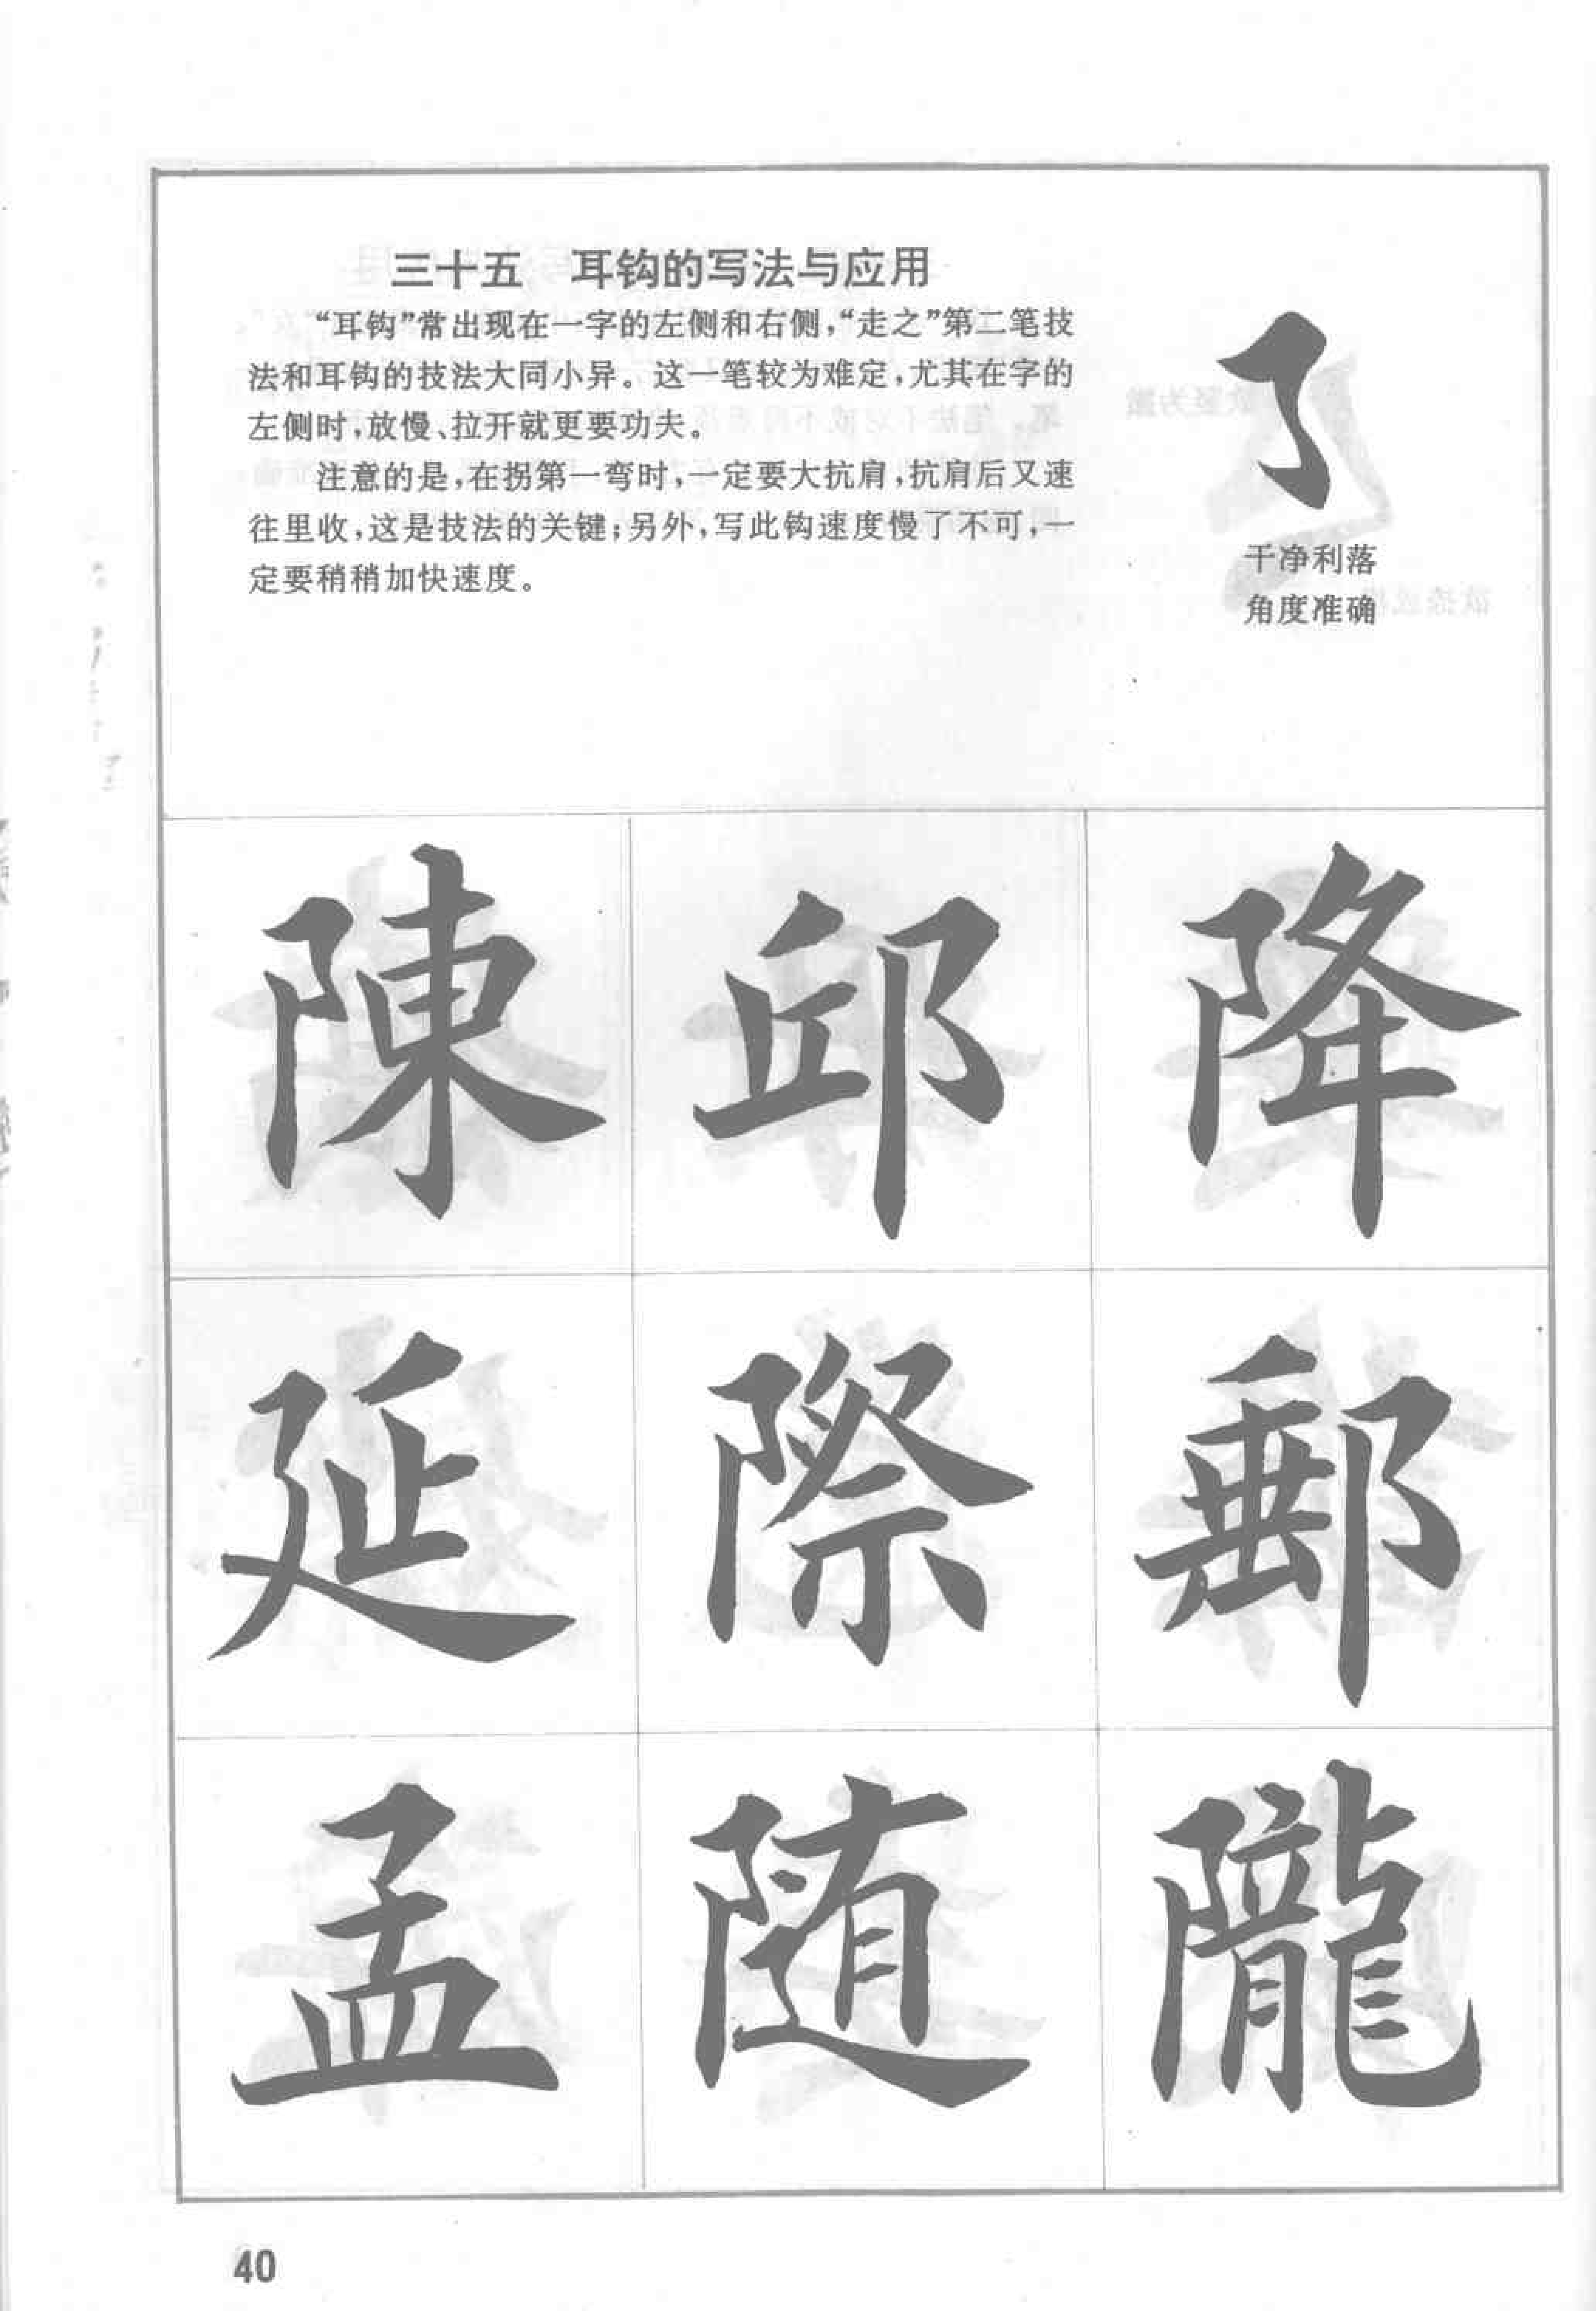 三十五　耳钩的写法与应用
“耳钩”常出现在一字的左侧和右侧，“走之”第二笔技
法和耳钩的技法大同小异。这一笔较为难定，尤其在字的
左侧时，放慢、拉开就更要功夫。
注意的是，在拐第一弯时，一定要大抗肩，抗肩后又速
往里收，这是技法的关键；另外，写此钩速度慢了不可，一
定要稍稍加快速度。
干净利落
角度准确
陳 邱 降
延 際 郵
孟 随 隴
40